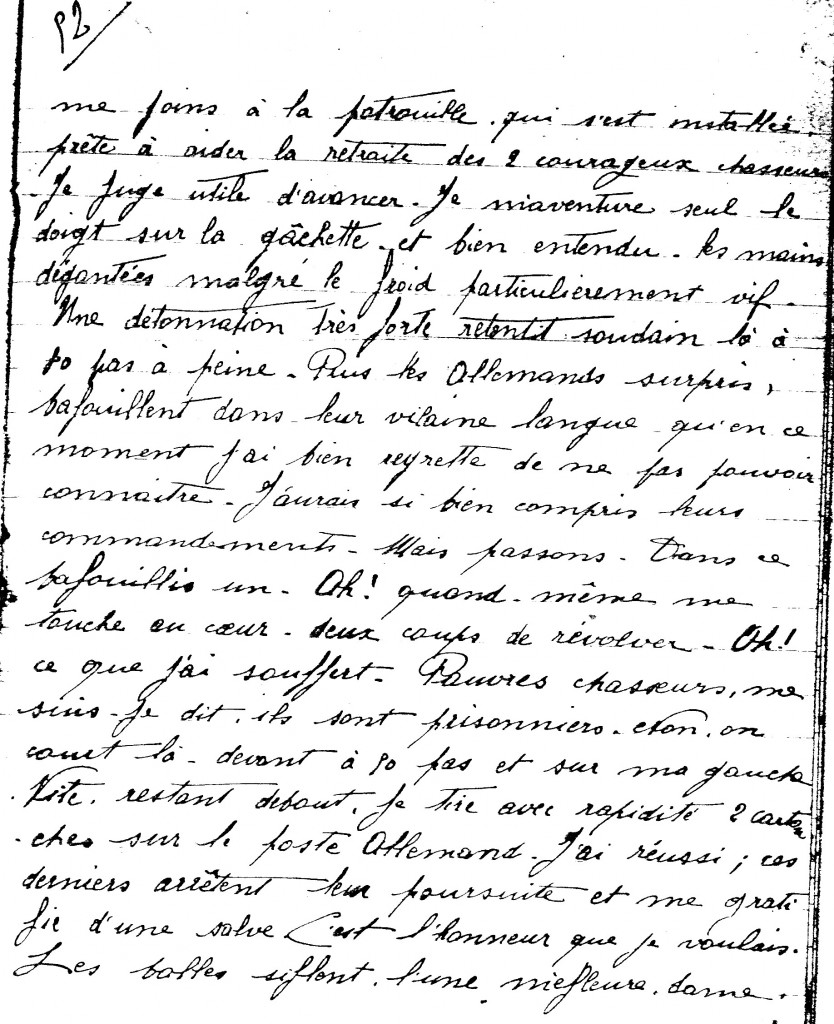 92/
me joins à la patrouille. qui s'est installée.
prête à aider la retraite des 2 courageux chasseurs
Je juge utile d'avancer. Je m'aventure seul le
doigt sur la gâchette. et bien entendu - les mains
dégantées malgré le froid particulièrement vif -
Une détonnation très forte retentit soudain là à
pas à peine - Puis les Allemands surpris,
bafouillent dans leur vilaine langue qu'en ce
moment j'ai bien regretté de ne pas pouvoir
connaitre - J'aurais si bien compris leurs
commandements - Mais passons - Dans ce
bafouillis un - Oh! quand - même me
touche au cœur - deux coups de révolver - Oh!
ce que j'ai souffert - Pauvres chasseurs, me
suis-je dit, ils sont prisonniers. on
court là - devant à 50 pas et sur ma gauche
Vite. restant debout, je tire avec rapidité 2 cartou
-ches sur le poste Allemand - J'ai réussi ; ces
derniers arrêtent leur poursuite et me grati
fie d'une salve C'est l'honneur que je voulais.
Les balles siflent. l'une m'efleure. dame.